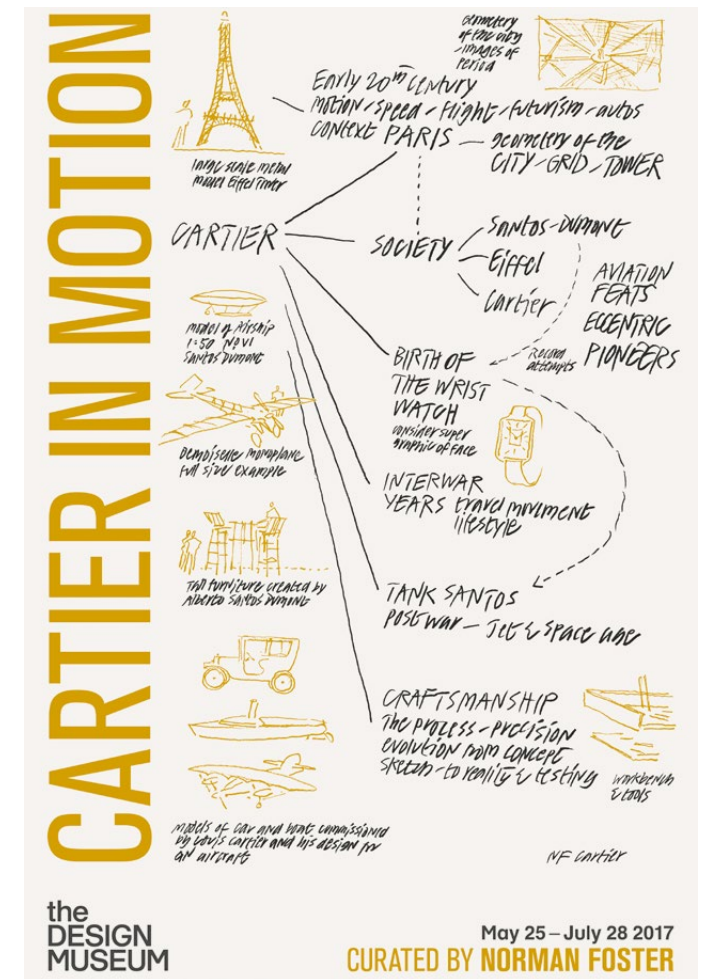 CARTIER IN MOTION
Geometery
of the city
-images of
period
Early 20th Century
motion-speed-flight-futurism-autos
context PARIS
geometery of the
CITY-GRID-TOWER
large scale metal
model Eiffel Tower
CARTIER
SOCIETY
Santos-Dumont
Eiffel
Cartier
AVIATION
FEATS
ECCENTRIC
PIONEERS
Record
attempts
model of Airship
1:50 No VI
Santos Dumont
BIRTH OF
THE WRIST
WATCH
consider super
graphic of face
Demoiselle monoplane
full size example
INTERWAR
YEARS travel movement
lifestyle
Tall furniture created by
Alberto Santos Dumont
TANK SANTOS
Post war - Jet & Space age
CRAFTSMANSHIP
The process-precision
evolution from concept
sketch-to reality & testing
workbench
& tools
models of car and boat commissioned
by Louis Cartier and his design for
an aircraft
NF Cartier
the
DESIGN
MUSEUM
May 25–July 28 2017
CURATED BY NORMAN FOSTER